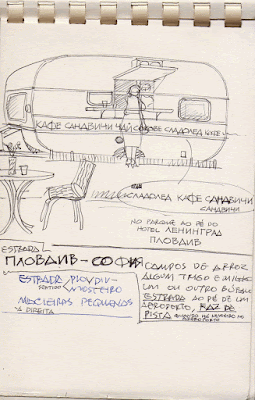 КАФЕ САНДВИЧИ ЧАЙ СОКОВЕ СЛАДОЛЕД КАФЕ
СЛАДОЛЕД КАФЕ САНДВИЧИ
САНДВИЧИ
NO PARQUE AO PÉ DO
HOTEL ЛЕНИНГРАД
ПЛОВДИВ
ESTRADA
ПЛОВДИВ-СОФИЯ
ESTRADA PLOVDIV-
MOSTEIRO
MACIEIRAS PEQUENAS
À DIREITA
CAMPOS DE ARROZ
ALGUM TRIGO E MILHO
UM OU OUTRO BÚFALO
ESTRADA AO PÉ DE UM
AEROPORTO, FAZ DE
PISTA QUANDO HÁ NEVOEIRO NO
AEROPORTO